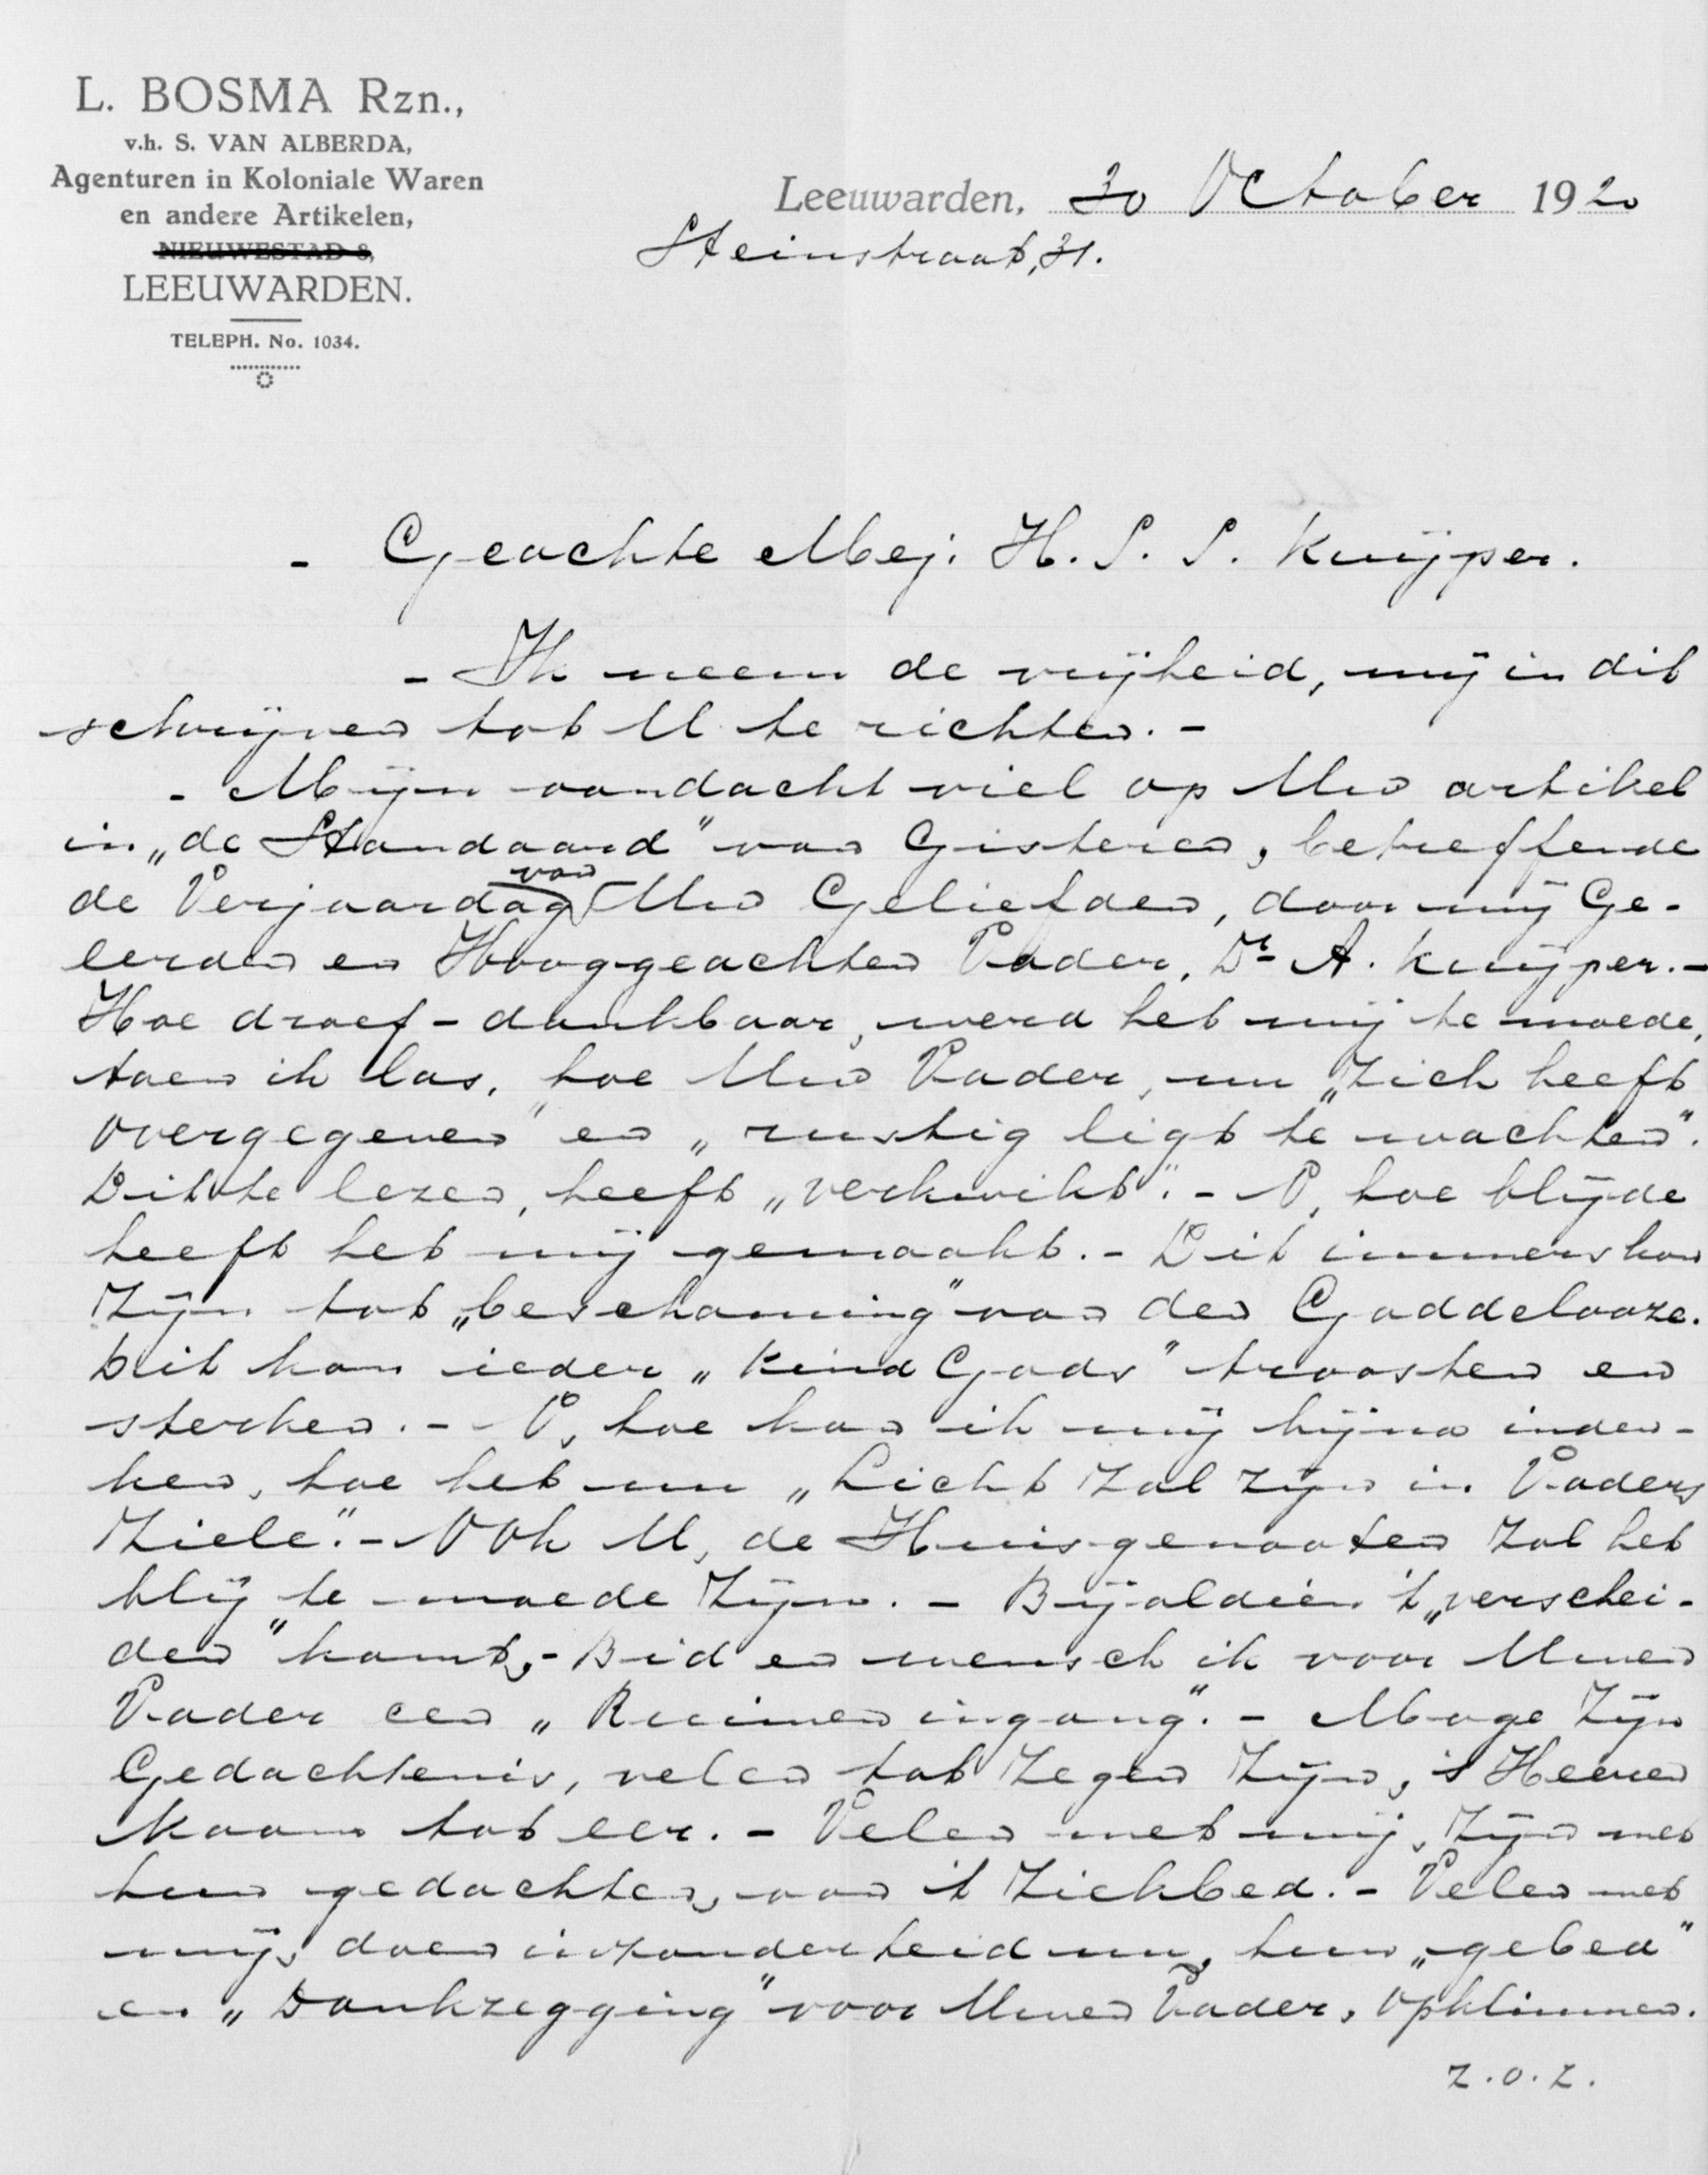 L. BOSMA Rzn.,
v.h. S. VAN ALBERDA,
Agenturen in Koloniale Waren
en andere Artikelen,
NIEUWESTAD 8,
LEEUWARDEN.
TELEPH. No. 1034.
Leeuwarden, 30 October 1920
Steinstraat, 31.
- Geachte Mej: H. S. S. Kuijper.
- Ik neem de vrijheid, mij in dit
schrijven tot U te richten. -
- Mijn aandacht viel op Uw artikel
in „de Standaard" van Gisteren, betreffende
de Verjaardag van Uw Geliefden, door mij Ge-
eerden en Hooggeachten Vader, Dr A. Kuijper. -
Hoe droef - dankbaar, werd het mij te moede,
toen ik las, hoe Uw Vader, nu „zich heeft
overgegeven" en „rustig ligt te wachten".
Dit te lezen, heeft „verkwikt". - O, hoe blijde
heeft het mij gemaakt. - Dit immers kan
zijn tot „beschaming" van den Goddelooze.
Dit kan ieder „Kind Gods" troosten en
sterken. - O, hoe kan ik mij bijna inden-
ken, hoe het nu „Licht zal zijn in Vaders
Ziele". - Ook U, de Huisgenooten zal het
blij te moede zijn. - Bijaldien 't „verschei-
den" komt, - Bid en wensch ik voor Uwen
Vader een „Ruimen ingang". - Moge Zijn
Gedachtenis, velen tot zegen zijn, 's Heeren
Naam tot eer. - Velen met mij, zijn met
hun gedachten, aan 't Ziekbed. - Velen met
mij, doen inzonderheid nu, hun „gebed"
en „Dankzegging" voor Uwen Vader, opklimmen.
z.o.z.